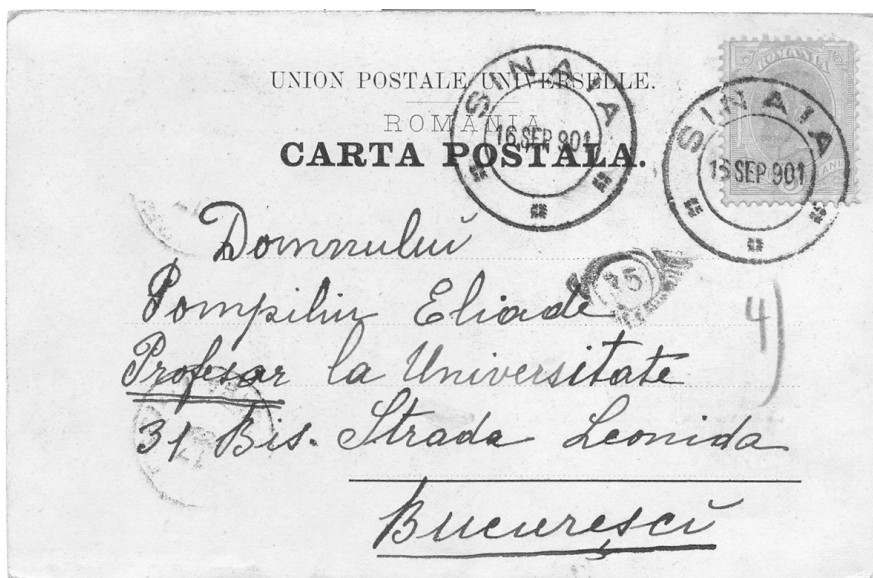 UNION POSTALE UNIVERSELLE.
ROMANIA
CARTA POSTALA.
SINAIA
16 SEP 901
ROMANIA
SINAIA
16 SEP 901
BANI
Domnului
15
Pompiliu Eliade
4)
Profesor la Universitate
31 Bis. Strada Leonida
Bucureșcĭ